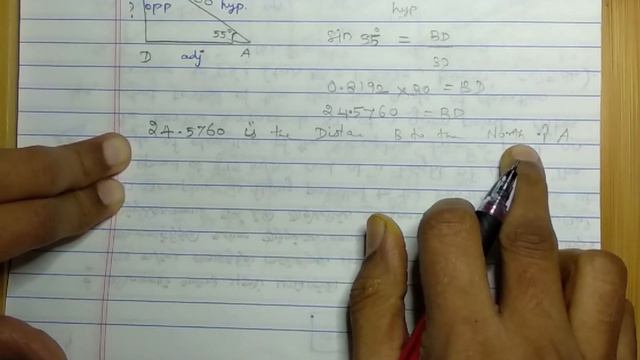 ? opp hyp. hyp
55°
D adj A
Sin 55° = BD
30
0.8192 × 30 = BD
24.5760 = BD
24.5760 is the Distan B to the North of A